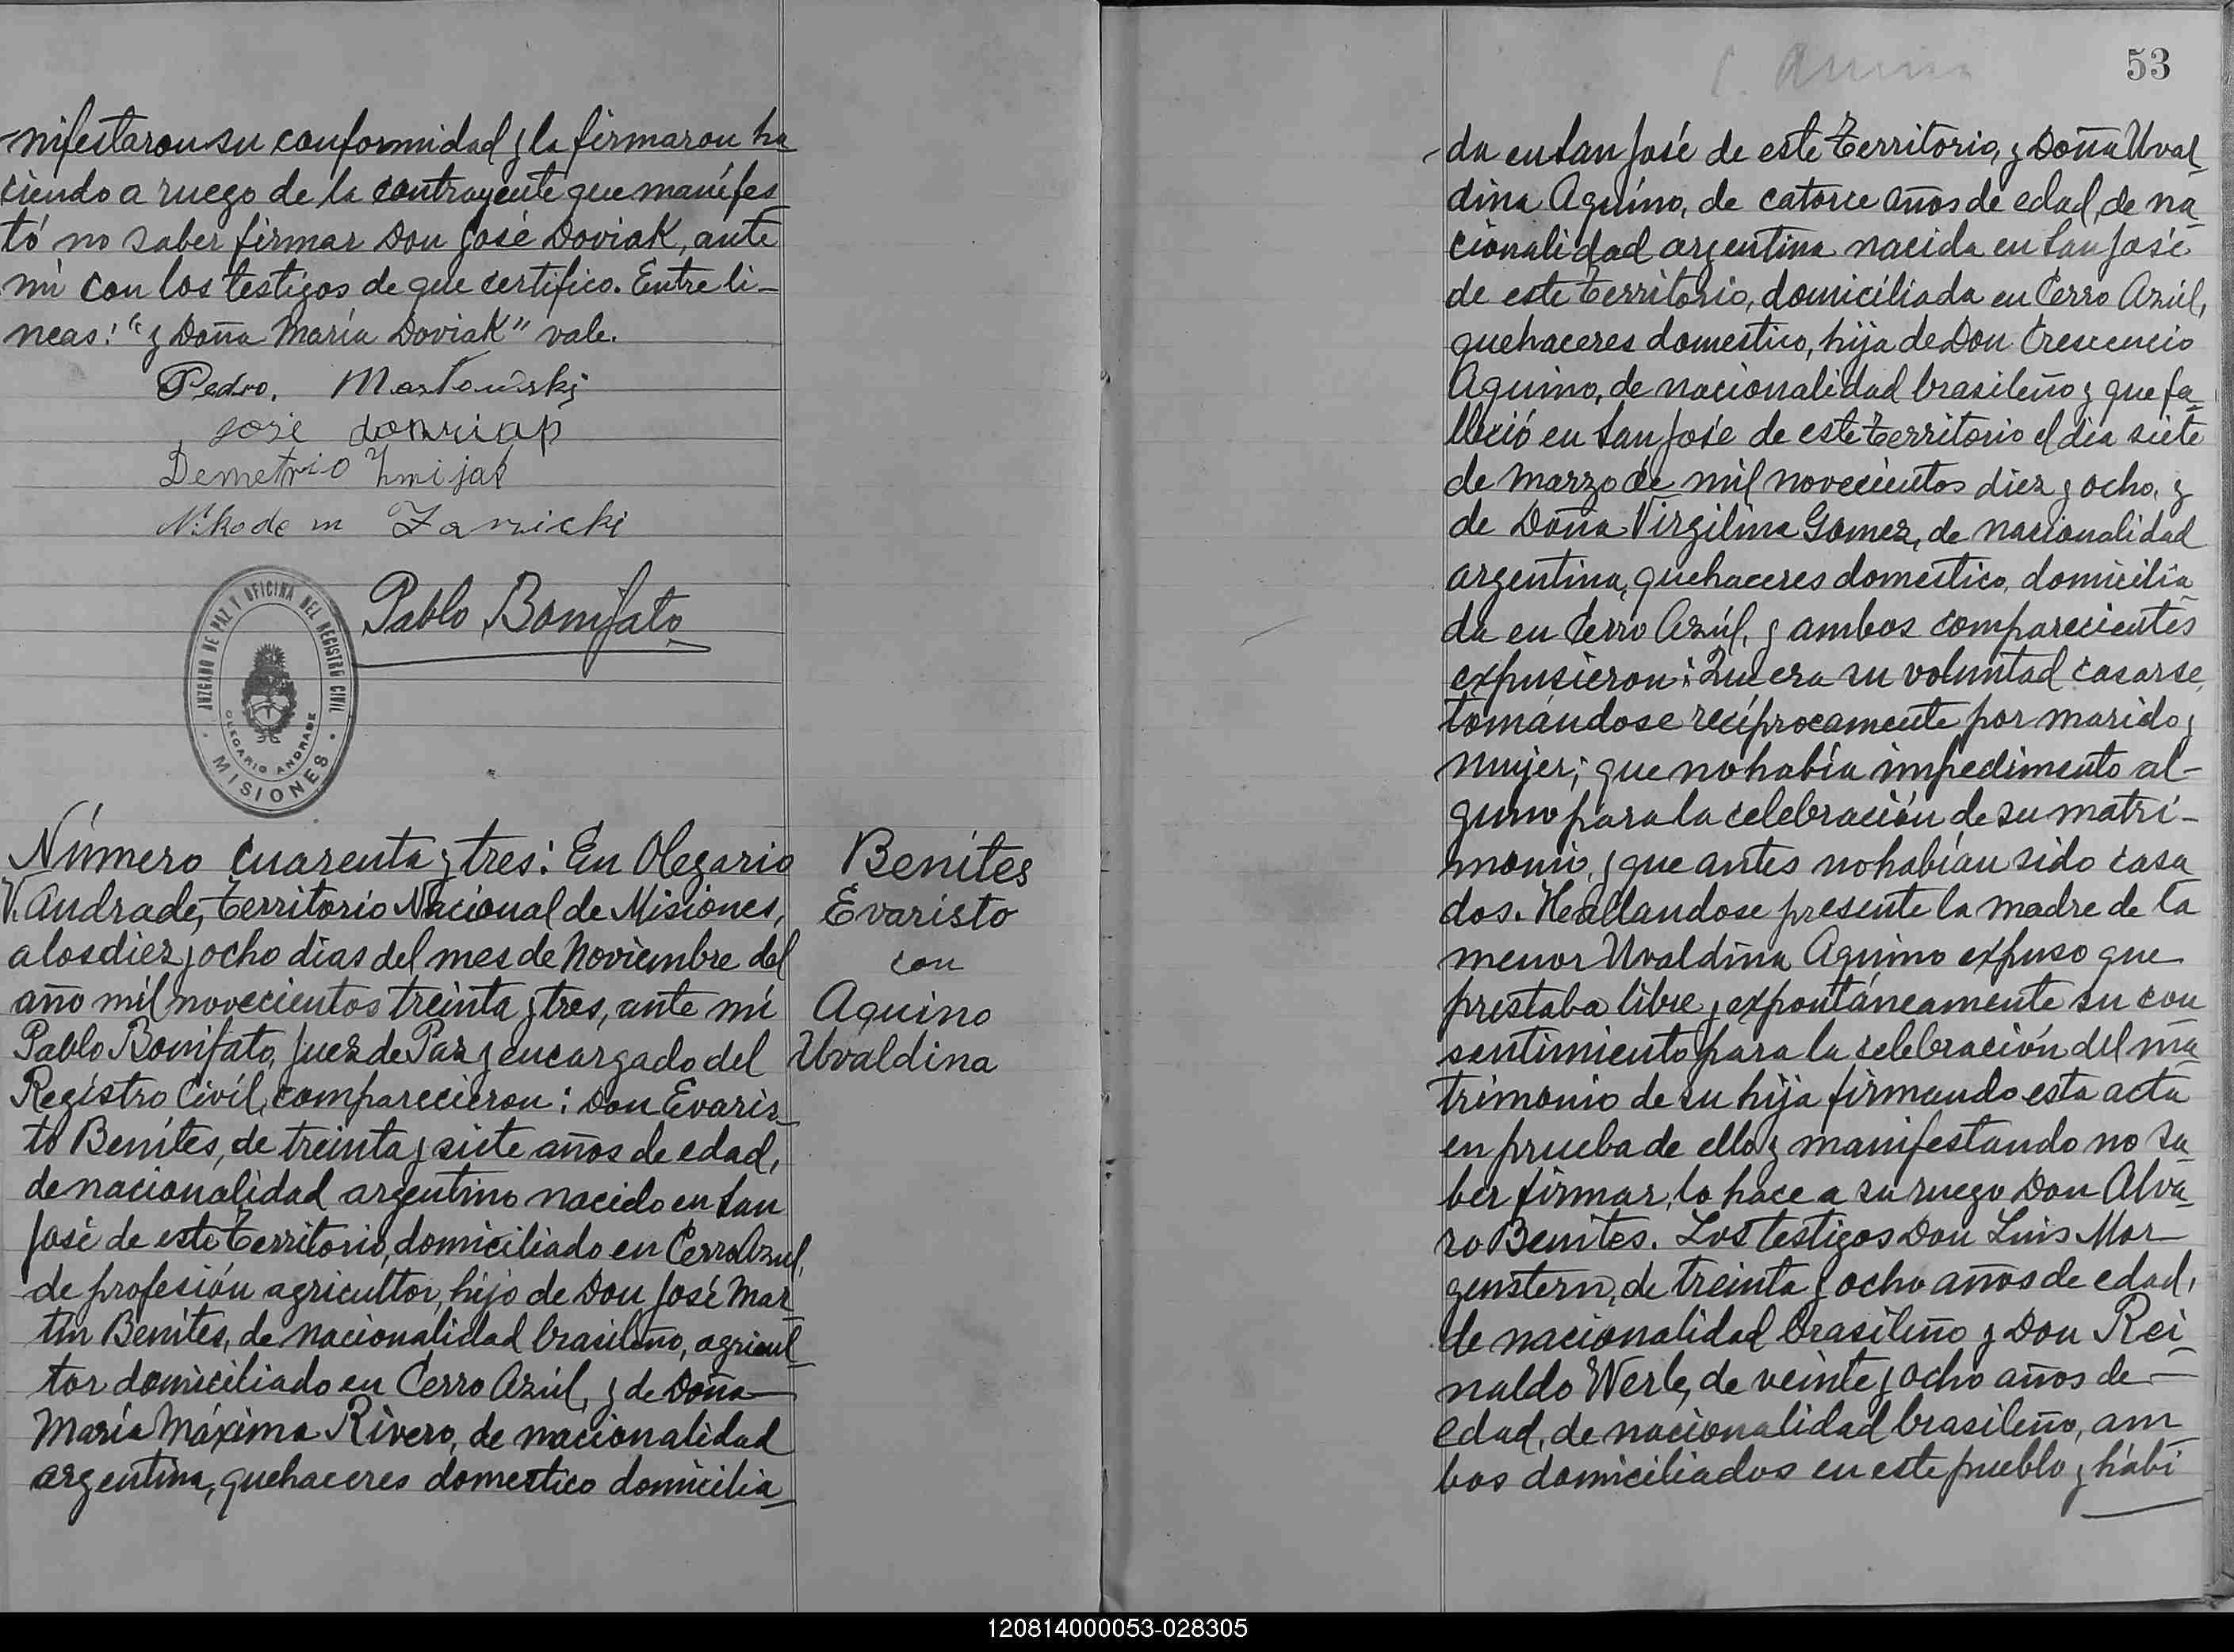 nifestaron su conformidad y la firmaron ha
ciendo a ruego de la contrayente que manifes
tó no saber firmar Don José Doviak, ante
mi con los testigos de que certifico. Entre li-
neas: "y Doña María Doviak" vale.
Pedro.
José
Demetrio Zmijak
Nikodem Zawicki
Pablo Bonifato
JUZGADO DE PAZ Y OFICINA DEL REGISTRO CIVIL
OLEGARIO ANDRADE
MISIONES
Número cuarenta y tres: En Olegario
V. Andrade, Territorio Nacional de Misiones,
a los diez y ocho dias del mes de Noviembre del
año mil novecientos treinta y tres, ante mi
Pablo Bonifato, Juez de Paz y encargado del
Registro Civil, comparecieron: Don Evaris-
to Benites, de treinta y siete años de edad,
de nacionalidad argentino nacido en San
José de este Territorio, domiciliado en Cerro Azul,
de profesión agricultor, hijo de Don José Mar
tin Benites, de nacionalidad brasileño, agricul
tor domiciliado en Cerro Azúl, y de Doña
María Máxima Rivero, de nacionalidad
argentina, quehaceres domestico domicilia
Benites
Evaristo
con
Aquino
Uvaldina
53
da en San José de este Territorio, y Doña Uval
dina Aquino, de catorce años de edad, de na
cionalidad argentina nacida en San José
de este Territorio, domiciliada en Cerro Azúl,
quehaceres domestico, hija de Don Crescencio
Aquino, de nacionalidad brasileño y que fa
lleció en San José de este Territorio el dia siete
de marzo de mil novecientos diez y ocho, y
de Doña Virgilina Gomez, de nacionalidad
argentina, quehaceres domestico, domicilia
da en Cerro Azúl, y ambos comparecientes
expusieron: Que era su voluntad casarse,
tomándose recíprocamente por marido y
mujer; que no había impedimento al-
guno para la celebración de su matri-
monio, y que antes no habían sido casa
dos. Heallandose presente la madre de la
menor Uvaldina Aquino expuso que
prestaba libre y expontáneamente su con
sentimiento para la celebración del ma
trimonio de su hija firmando esta acta
en prueba de ello y manifestando no sa
ber firmar, lo hace a su ruego Don Alva-
ro Benites. Los testigos Don Luis Mor
genstern, de treinta y ocho años de edad,
de nacionalidad brasileño y Don Rei
naldo Werle, de veinte y ocho años de
edad, de nacionalidad brasileño, am
bos domiciliados en este pueblo y hábi
120814000053-028305